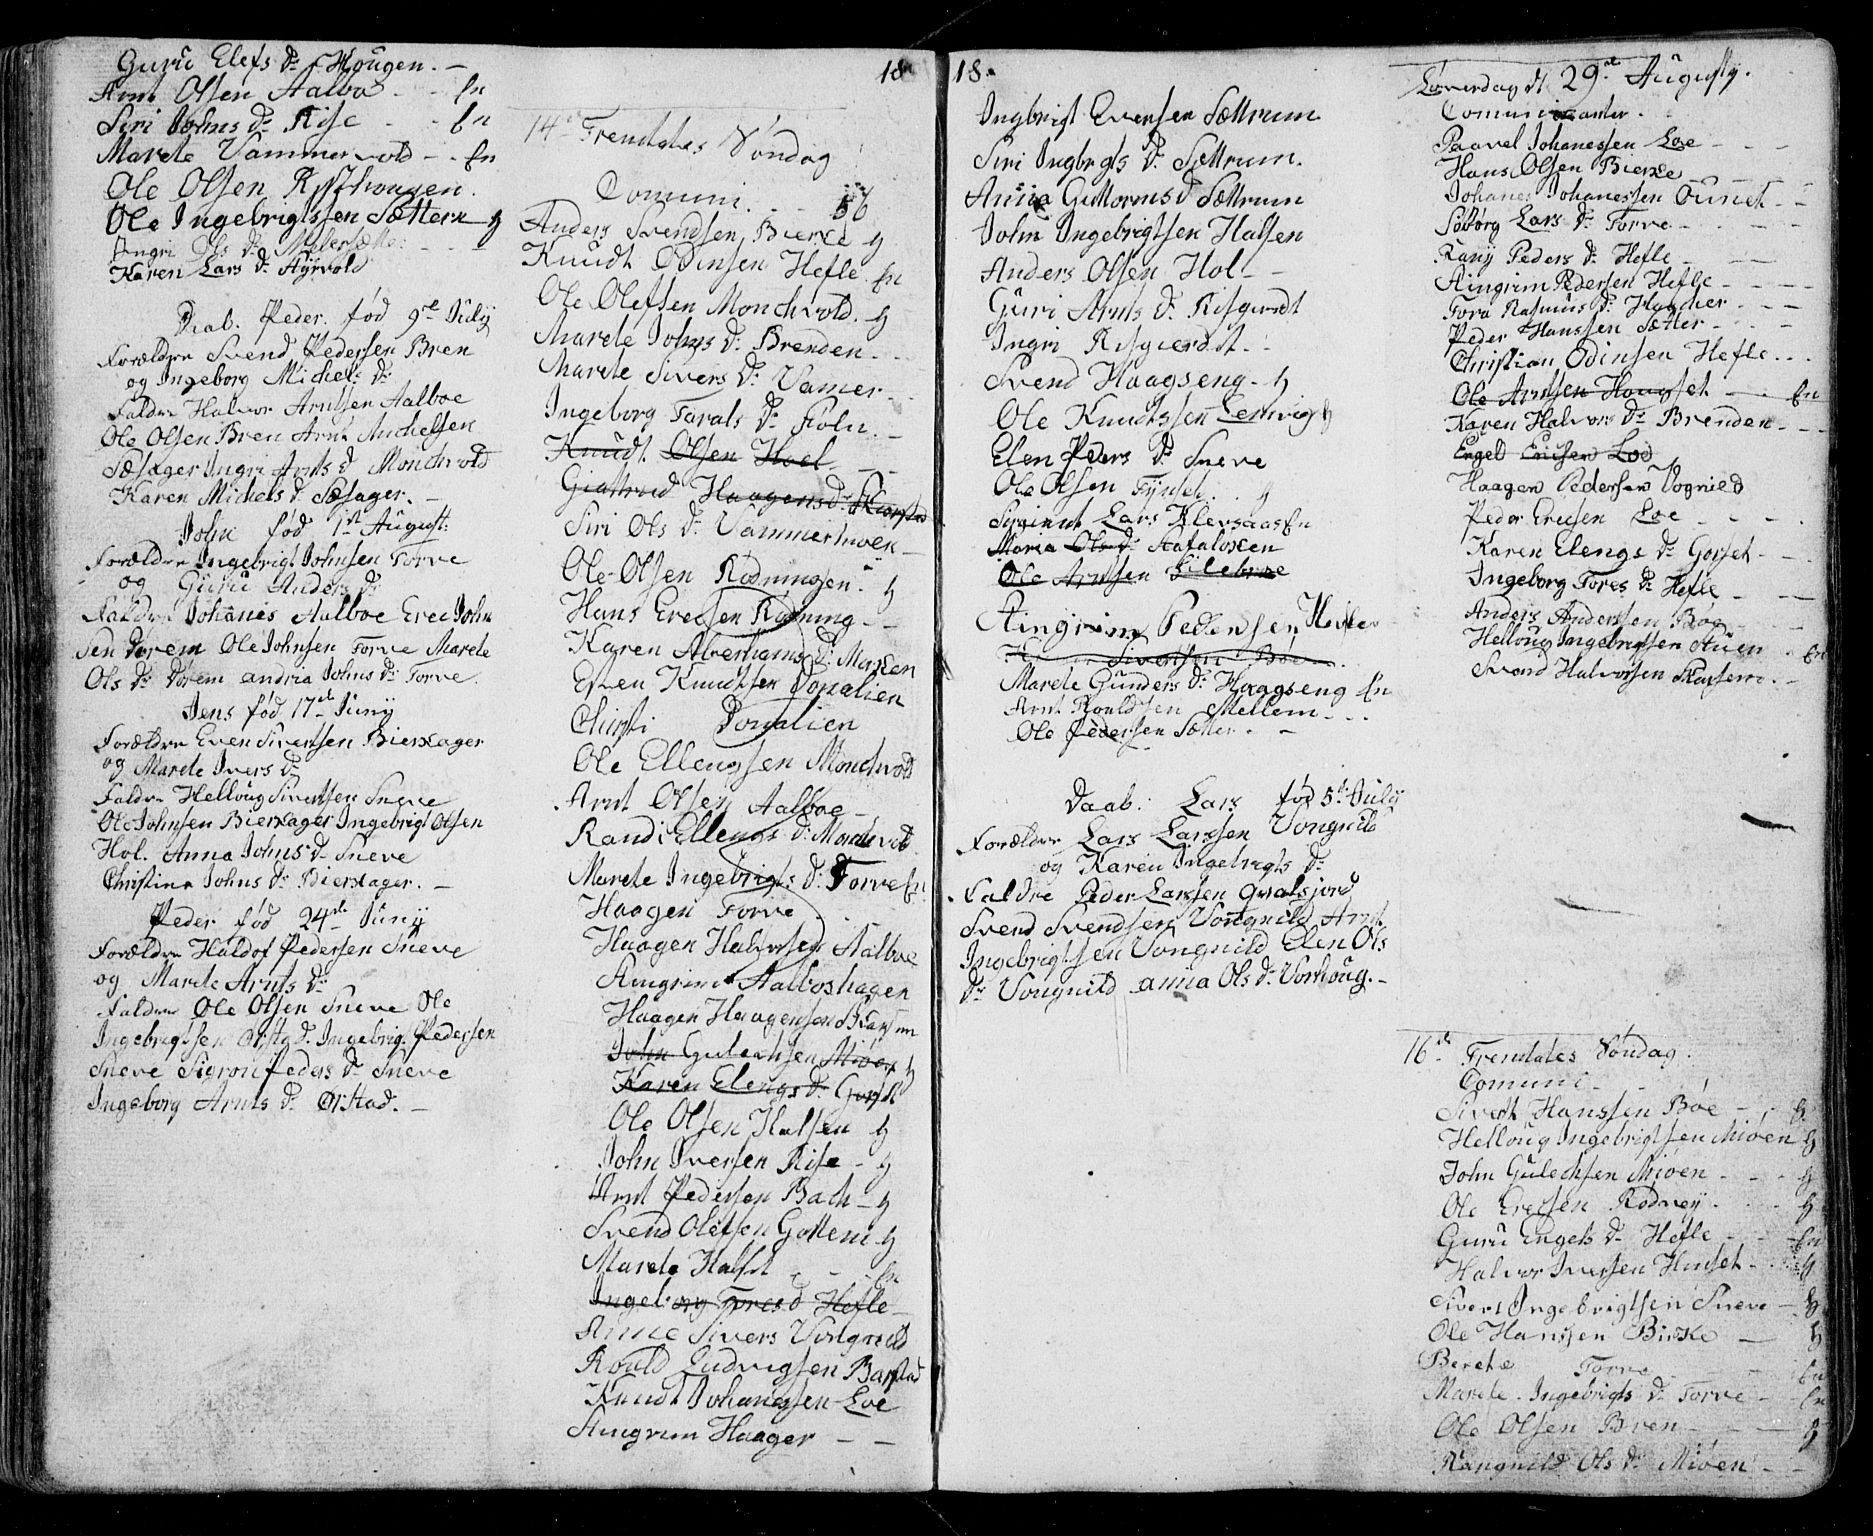 Guru Elefs D: Hougen. —
Arnt Olsen Aalbo - - En
Siri Johns D: Rise - - En
Marete Vammervold - - En
Ole Olsen Risthougen.
Ole Ingebrigtssen Sættern - H
Ingri Ols D:
Karen Lars D:
Daab. Peder. fød 9de July
Forældre Svend Pedersen Bren
og Ingeborg Michels D:
Faddre Halvor Arntsen Aalboe
Ole Olsen Bren Arnt Michelsen
Sæsager Ingri Arnts D Monchvold
Karen Michels D: Sæsager. —
John fød 1st August:
Forældre Ingebrigt Johnsen Torve
og Guru Anders D:
Faddre Johanes Aalboe Erec John
sen Dørem Ole Johnsen Torve Marete
Ols D: Dørem andria Johns D: Torve.
Jens fød 17de Juny
Forældre Even Sivertsen Bierkager
og Marete Ivers D:
Faddre Helloug Sivertsen Sneve
Ole Johnsen Bierkager Ingebrigt Olsen
Hol. Anna Johns D: Sneve
Christina Johns D: Bierkager. —
Peder fød 24de Juny
Forældre Haldof Pedersen Sneve
og Marete Arnts D:
Faddre Ole Olsen Sneve Ole
Ingebrigtsen Ørstad. Ingebrig. Pedersen
Sneve Sigron Peders D: Sneve
Ingeborg Arnts D: Ørstad. —
18
14de Trenitates Søndag
Comuni. - - 56
Anders Svendsen Bierke H
Knudt Odinsen Hefle. En
Ole Olefsen Monchvold. H
Marete Johns D: Brenden - -
Marete Sivers D: Vamer - -
Ingeborg Tarals D: Floln. —
Knudt Olsen Hoel - -
Giattrud Haagens D:
Siri Ols D: Vammerhuen -
Ole Olsen Rødningsen. H
Hans Erecsen Rødning - -
Karen Abrehams D: Morken
Even Knudtsen Donalien
Christi Donalien
Ole Ellengsen Monchvold
Arnt Olsen Aalboe -
Randi Ellengs D: Monchvold
Marete Ingebrigts D: Torve En
Haagen Torve
Haagen Halvorsen Aalboe
Amgrim Aalboshagen
Haagen Haagensen
John Gulechsen Miøen H
Karen Elengs D: Gorset
Ole Olsen Halsen H
John Iversen Rise - H
Arnt Pedersen Bach - H
Svend Olefsen Gottem H
Marete Halset - - En
Ingeborg Tores D Hefle -
Anne Sivers Vongnild
Roald Ludvigsen Barstad
Knudt Johanessen Loe
Amgrim Haager - -
18.
Ingbrigt Evensen Sættrum
Siri Ingbrgts D: Sættrum.
Anna Guttorms D Sættrum
John Ingebrigtsen Halsen
Anders Olsen Hol - -
Guri Arnts D: Risgierdt
Ingri Risgierdt - -
Svend Haagseng - H
Ole Knudtssen Lenvig H
Elen Peders D: Sneve
Ole Olsen Fynset. . H
Sersient Lars Klevsaas En
Maria Ols D:
Ole Arntsen Lilebroe
Aingrim Pedersen Hefle
Sivertsen Bøe
Marete Gunders D: Haagseng En
Arnt Roaldsen Mellem - -
Ole Pedersen Sætter. -
Daab. Lars fød 5te July
Forældre Lars Larssen Vongnild
og Karen Ingebrigts D:
Faldre Peder Larssen Gralsjord
Svend Svendsen Vongnild Arnt
Ingebrigtsen Vongnild Elen Ols
D: Vongnild anna Ols D: Vorhoug. -
Løverdag d 29de Augusty.
Comunicanter.
Paavel Johanessen Loe - - -
Hans Olsen Bierke - - -
Johanes Johanessen Ouneet - -
Søborg Lars D: Torve - - -
Rany Peders D: Hefle - -
Aingrim Pedersen Hefle - - -
Tora Rasmus D: Haacher - - -
Peder Hanssen Sætter - - -
Christian Odinsen Hefle . . .
Ole Arntsen Hougset - En
Karen Halvors D: Brenden - - -
Engel Ericsen Loe
Haagen Pedersen Vognild
Peder Ericsen Loe - - -
Karen Elengs D: Gorset - -
Ingeborg Tores D: Hefle - -
Anders Andersen Bøe - -
Helloug Ingebrigtsen Stuen - En
Svend Halvorsen Skarsem. -
16de Trenitates Søndag.
Comuni -
Sivert Hanssen Bøe - - H
Helloug Ingebrigtsen Miøen H
John Gulechsen Miøen - - H
Ole Erecsen Rødvey - - H
Guru Engels D: Hefle - - En
Halvor Iversen Hinset - - H
Sivert Ingebrigtsen Sneve - H
Ole Hanssen Birke - H
Berete Torve - - En
Marete Ingebrigts D: Torve - En
Ole Olsen Bren - - H
Rangnild Ols D: Miøen - -